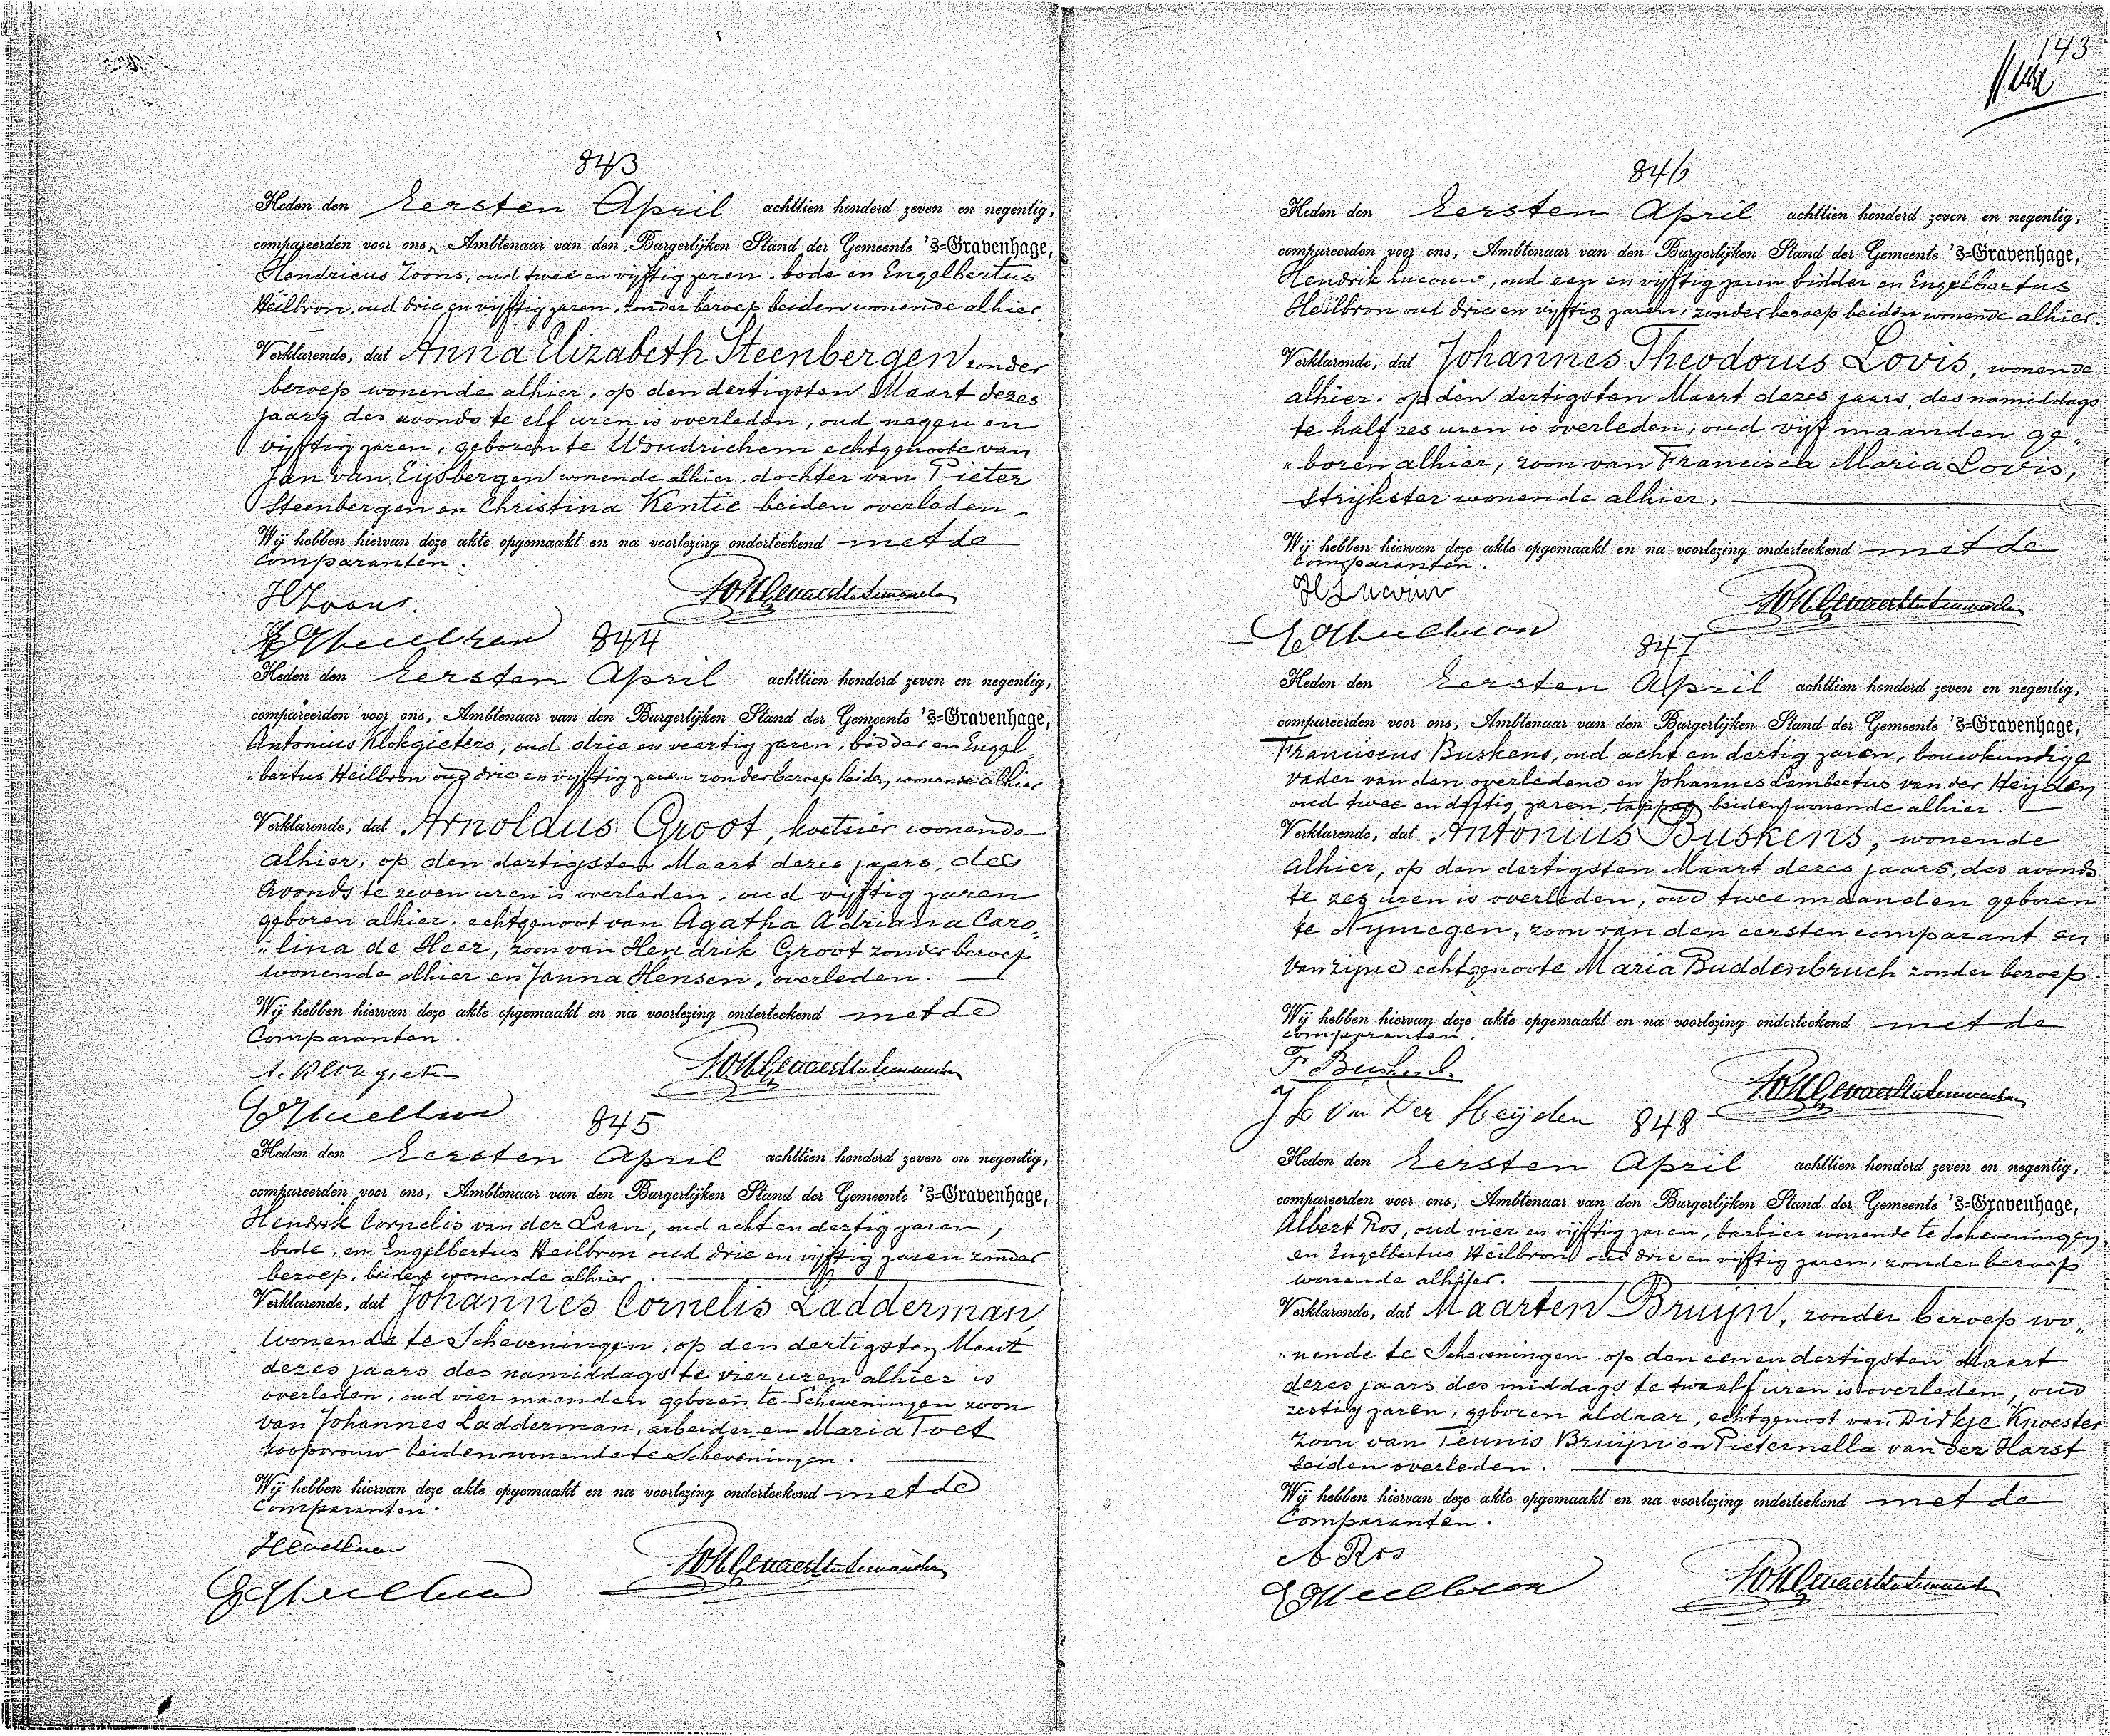 843
Heden den Eersten April achttien honderd zeven en negentig,
compareerden voor ons, Ambtenaar van den Burgerlijken Stand der Gemeente 's=Gravenhage,
Hendricus Zoons, oud twee en vijftig jaren, bode en Engelbertus
Heilbron, oud drie en vijftig jaren, zonder beroep beiden wonende alhier.
Verklarende, dat Anna Elizabeth Steenbergen zonder
beroep wonende alhier, op den dertigsten Maart dezes
jaars des avonds te elf uren is overleden, oud negen en
vijftig jaren, geboren te Woudrichem echtgenoote van
Jan van Eijsbergen wonende alhier, dochter van Pieter
Steenbergen en Christina Kentie beiden overleden
Wij hebben hiervan deze akte opgemaakt en na voorlezing onderteekend met de
Comparanten.
HZoons.
E Heilbron
844
Heden den Eersten April achttien honderd zeven en negentig,
compareerden voor ons, Ambtenaar van den Burgerlijken Stand der Gemeente 's=Gravenhage,
Antonius Klokgieters, oud drie en veertig jaren, bidder en Engel„
„bertus Heilbron oud drie en vijftig jaren zonder beroep beiden, wonende alhier
Verklarende, dat Arnoldus Groot, koetsier wonende
alhier, op den dertigsten Maart dezes jaars, des
avonds te zeven uren is overleden, oud vijftig jaren
geboren alhier, echtgenoot van Agatha Adriana Caro„
„lina de Heer, zoon van Hendrik Groot zonder beroep
wonende alhier en Janna Hensen, overleden.
Wij hebben hiervan deze akte opgemaakt en na voorlezing onderteekend met de
Comparanten.
A. Klokgieters
E Heilbron
845
Heden den Eersten April achttien honderd zeven en negentig,
compareerden voor ons, Ambtenaar van den Burgerlijken Stand der Gemeente 's=Gravenhage,
Hendrik Cornelis van der Laan, oud acht en dertig jaren,
bode, en Engelbertus Heilbron oud drie en vijftig jaren zonder
beroep, beiden wonende alhier.
Verklarende, dat Johannes Cornelis Ladderman,
wonende te Scheveningen, op den dertigsten Maart
dezes jaars des namiddags te vier uren alhier is
overleden, oud vier maanden geboren te Scheveningen zoon
van Johannes Ladderman, arbeider en Maria Toet
koopvrouw beiden wonende te Scheveningen.
Wij hebben hiervan deze akte opgemaakt en na voorlezing onderteekend met de
Comparanten.
E Heilbron
143
846
Heden den Eersten April achttien honderd zeven en negentig,
compareerden voor ons, Ambtenaar van den Burgerlijken Stand der Gemeente 's=Gravenhage,
Hendrik, oud een en vijftig jaren bidder en Engelbertus
Heilbron oud drie en vijftig jaren, zonder beroep beiden wonende alhier.
Verklarende, dat Johannes Theodorus Lovis, wonende
alhier, op den dertigsten Maart dezes jaars, des namiddags
te half zes uren is overleden, oud vijf maanden ge„
„boren alhier, zoon van Francisca Maria Lovis,
strijkster wonende alhier.
Wij hebben hiervan deze akte opgemaakt en na voorlezing onderteekend met de
Comparanten.
E Heilbron
847
Heden den Eersten April achttien honderd zeven en negentig,
compareerden voor ons, Ambtenaar van den Burgerlijken Stand der Gemeente 's=Gravenhage,
Franciscus Buskens, oud acht en dertig jaren, bouwkundige
vader van den overledene en Johannes Lambertus van der Heijden
oud twee en dertig jaren, tapper beiden wonende alhier.
Verklarende, dat Antonius Buskens, wonende
alhier, op den dertigsten Maart dezes jaars, des avonds
te zes uren is overleden, oud twee maanden geboren
te Nymegen, zoon van den eersten comparant en
van zijne echtgenoote Maria Buddenbruch zonder beroep.
Wij hebben hiervan deze akte opgemaakt en na voorlezing onderteekend met de
Comparanten.
F Buskens.
J L van Der Heijden
848
Heden den Eersten April achttien honderd zeven en negentig,
compareerden voor ons, Ambtenaar van den Burgerlijken Stand der Gemeente 's=Gravenhage,
Albert Ros, oud vier en vijftig jaren, barbier wonende te Scheveningen,
en Engelbertus Heilbron oud drie en vijftig jaren, zonder beroep
wonende alhier.
Verklarende, dat Maarten Bruijn, zonder beroep wo„
„nende te Scheveningen op den een en dertigsten Maart
dezes jaars des middags te twaalf uren is overleden, oud
zestig jaren, geboren aldaar, echtgenoot van Dirkje Knoester
zoon van Teunis Bruijn en Pieternella van der Harst
beiden overleden.
Wij hebben hiervan deze akte opgemaakt en na voorlezing onderteekend met de
Comparanten.
A Ros
E Heilbron